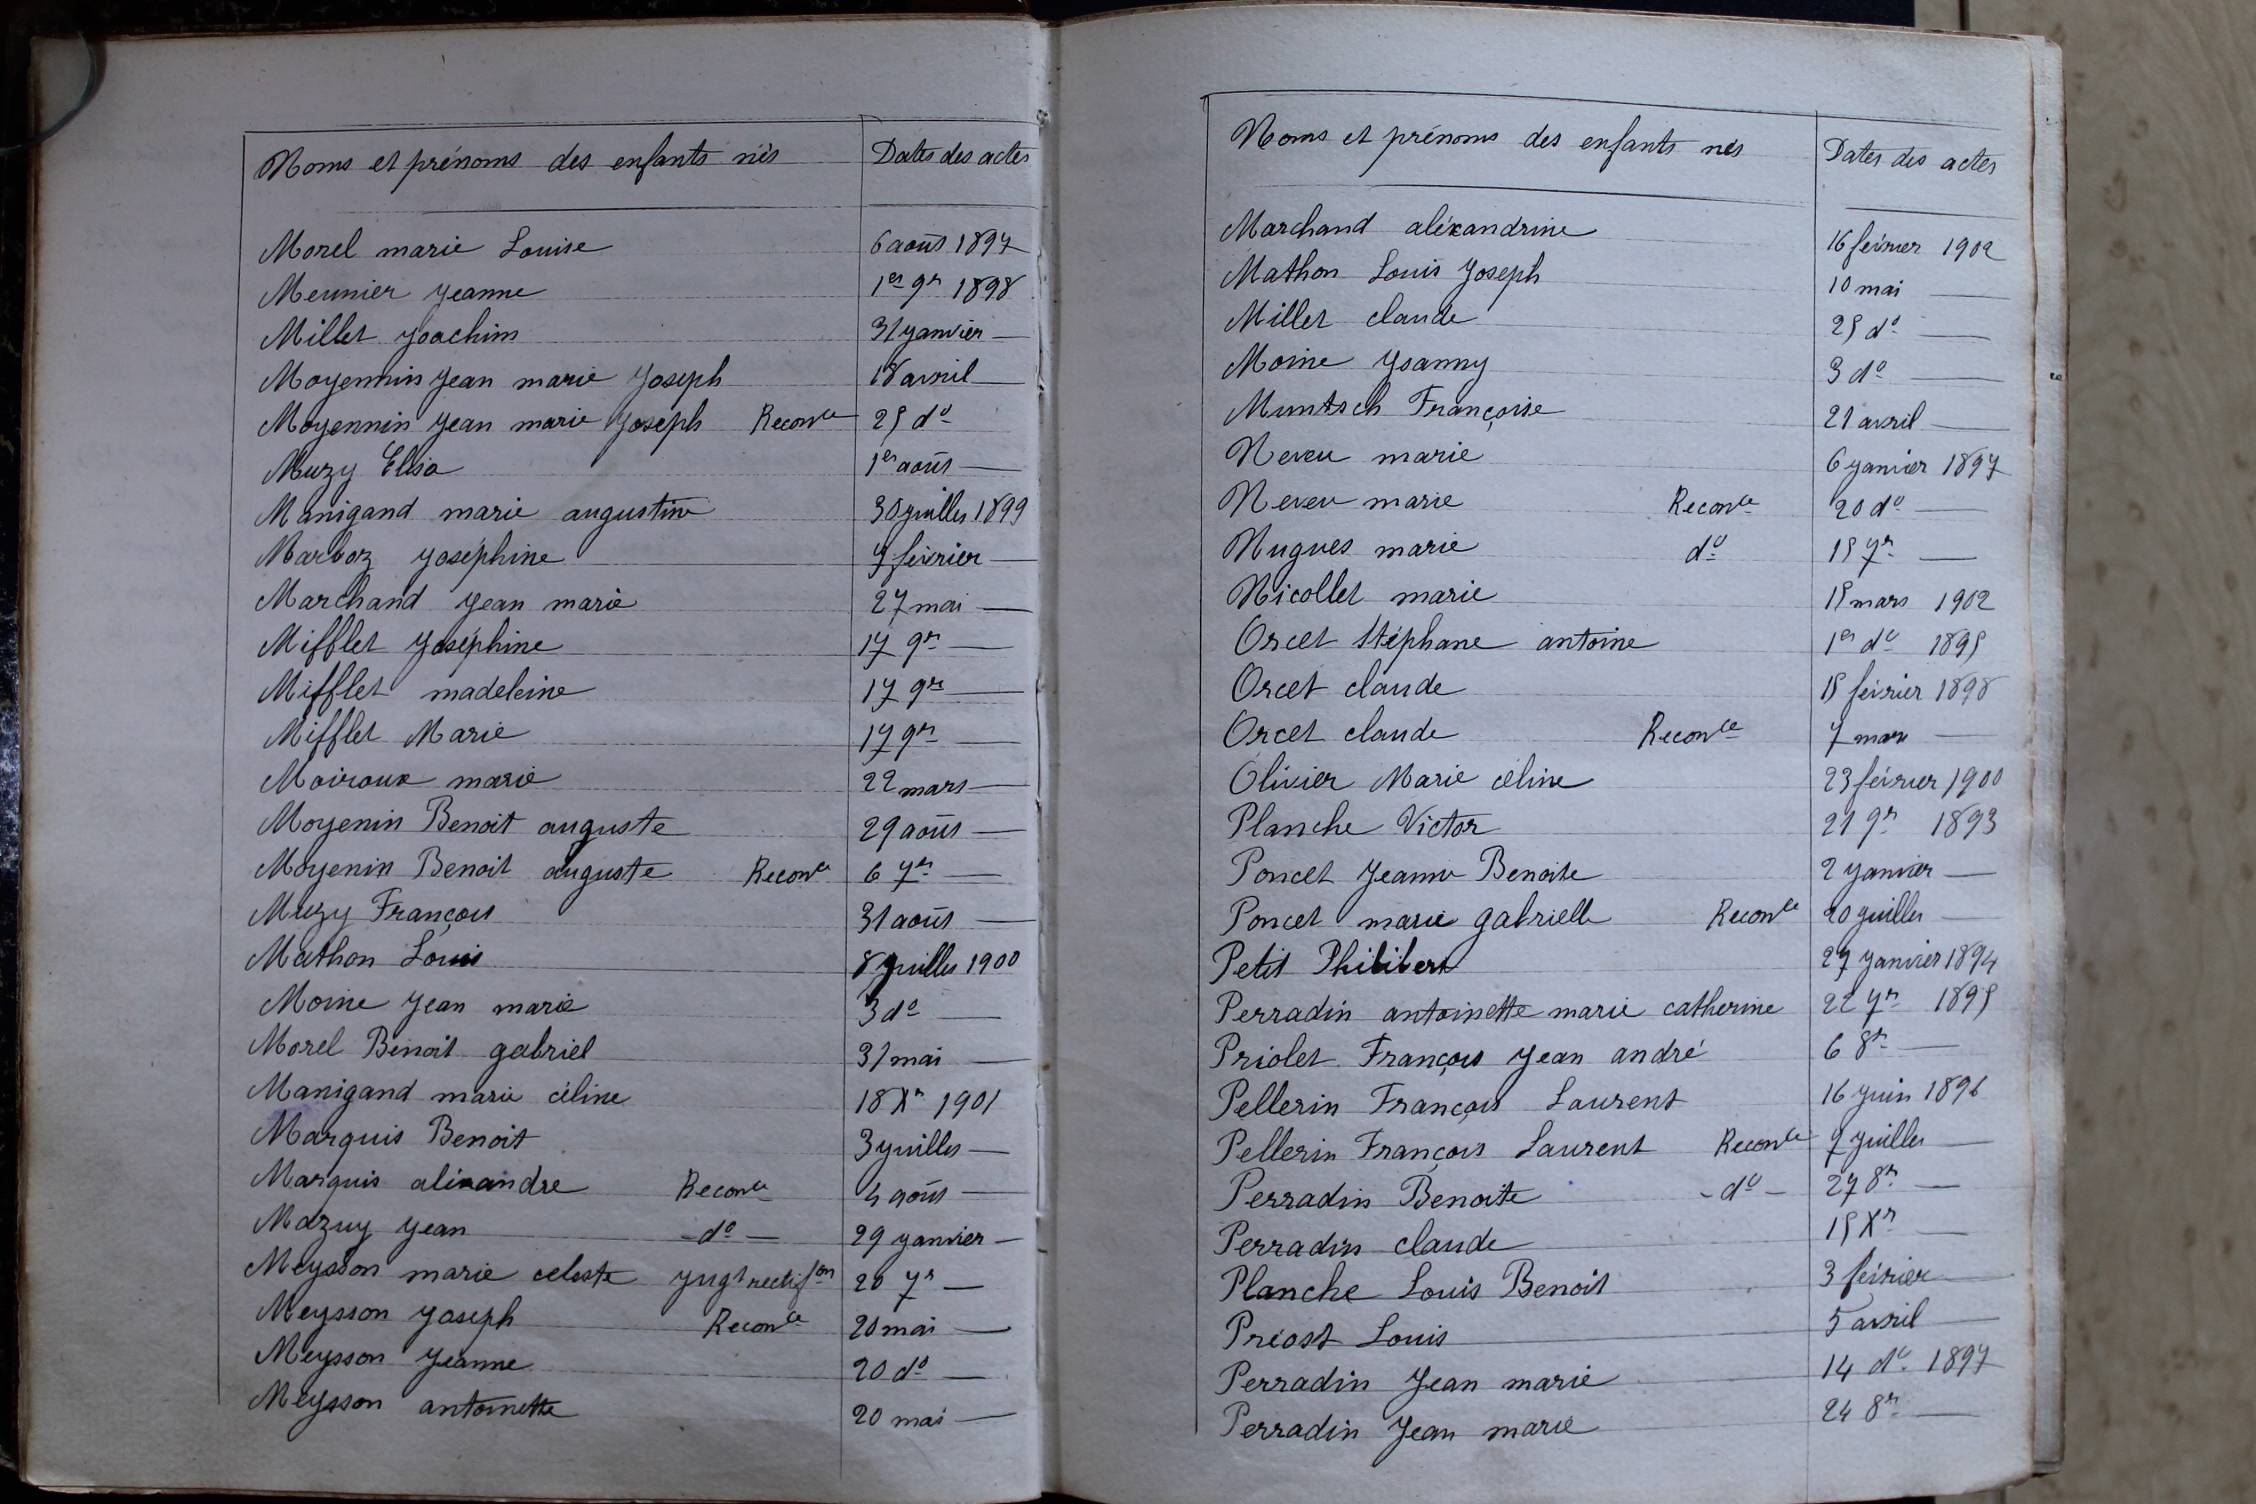 Noms et prénoms des enfants nés Dates des actes
Morel marie Louise 6 août 1897
Meunier Jeanne 1er 9r 1898
Millet Joachim 31 Janvier —
Moyennin Jean marie Joseph 18 avril —
Moyennin Jean marie Joseph Reconce 25 do
Muzy Elisa 1er août —
Manigand marie augustine 30 Juillet 1899
Marboz Joséphine 7 février —
Marchand Jean marie 27 mai —
Mifflet Joséphine 17 9r —
Mifflet madeleine 17 9re —
Mifflet Marie 17 9re —
Moiroux marie 22 mars —
Moyenin Benoit auguste 29 août —
Moyenin Benoit auguste Reconce 6 7re —
Muzy François 31 août —
Mathon Louis 8 Juillet 1900
Moine Jean marie 3 do —
Morel Benoit gabriel 31 mai —
Manigand marie céline 18 Xr 1901
Marquis Benoit 3 Juillet —
Marquis aléxandre Reconce 4 août —
Mazuy Jean - do — 29 Janvier —
Meysson marie celeste Jugt rectifon 20 7r —
Meysson Joseph Reconce 20 mai —
Meysson Jeanne 20 do —
Meysson antoinette 20 mai —
Noms et prénoms des enfants nés Dates des actes
Marchand aléxandrine 16 février 1902
Mathon Louis Joseph 10 mai —
Millet claude 25 do —
Moine Joanny 3 do —
Muntsch Françoise 21 avril —
Neveu marie 6 Janvier 1897
Neveu marie Reconce 20 do —
Nugues marie do 15 7r —
Nicollet marie 15 mars 1902
Orcet Stéphane antoine 1er do 1895
Orcet claude 15 février 1898
Orcet claude Reconce 7 mars —
Olivier Marie céline 23 février 1900
Planche Victor 21 9r 1893
Poncet Jeanne Benoite 2 Janvier —
Poncet marie gabrielle Reconce 20 Juillet —
Petit Philibert 27 Janvier 1894
Perradin antoinette marie catherine 22 7r 1895
Priolet François Jean andré 6 8r —
Pellerin François Laurent 16 Juin 1896
Pellerin François Laurent Reconce 9 Juillet —
Perradin Benoite - do - 27 8r —
Perradin claude 15 Xr —
Planche Louis Benoit 3 février —
Préost Louis 5 avril —
Perradin Jean marie 14 do 1897
Perradin Jean marie 24 8r —